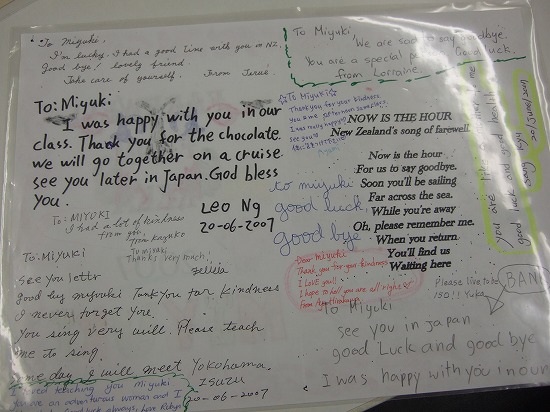 To Miyuki,
I'm lucky. I had a good time with you in NZ.
Good bye! Lovely friend.
Take care of yourself. From Terue.
To Miyuki,
We are sad to say goodbye.
You are a special
Good luck.
from Lorraine.
To: Miyuki
I was happy with you in our
class. Thank you for the chocolate.
we will go together on a cruise.
see you later in Japan. God bless
you.
Leo Ng
20-06-2007
☆To Miyuki☆
Thank you for your kindness
you are
I was really happy!!
see you!!
NOW IS THE HOUR
New Zealand's song of farewell
Now is the hour
For us to say goodbye.
Soon you'll be sailing
Far across the sea.
While you're away
Oh, please remember me.
When you return
You'll find us
Waiting here
you are like
good luck and good health
20/June/2007
to miyuki
good luck.
good bye.
To: MIYUKI
I had a lot of kindness
from you.
from Kazuko
To miyuki
Thanks very much.
To: Miyuki
see you letts
Good by miyuki Tankyou far kindness
I never forget you.
You sing very will. Please teach
me to sing.
Some day I will meet Yokohama.
ISUZU
20-06-2007
Dear Miyuki
Thank you for your kindness
I LOVE you!!
I hope to hell you are all right
from
Please live to be
150!! Yuka
BAN
To Miyuki
see you in japan
good Luck and good bye
I was happy with you in our
loved teaching you Miyuki
You are an adventurous woman and I
good luck always, love Robyn